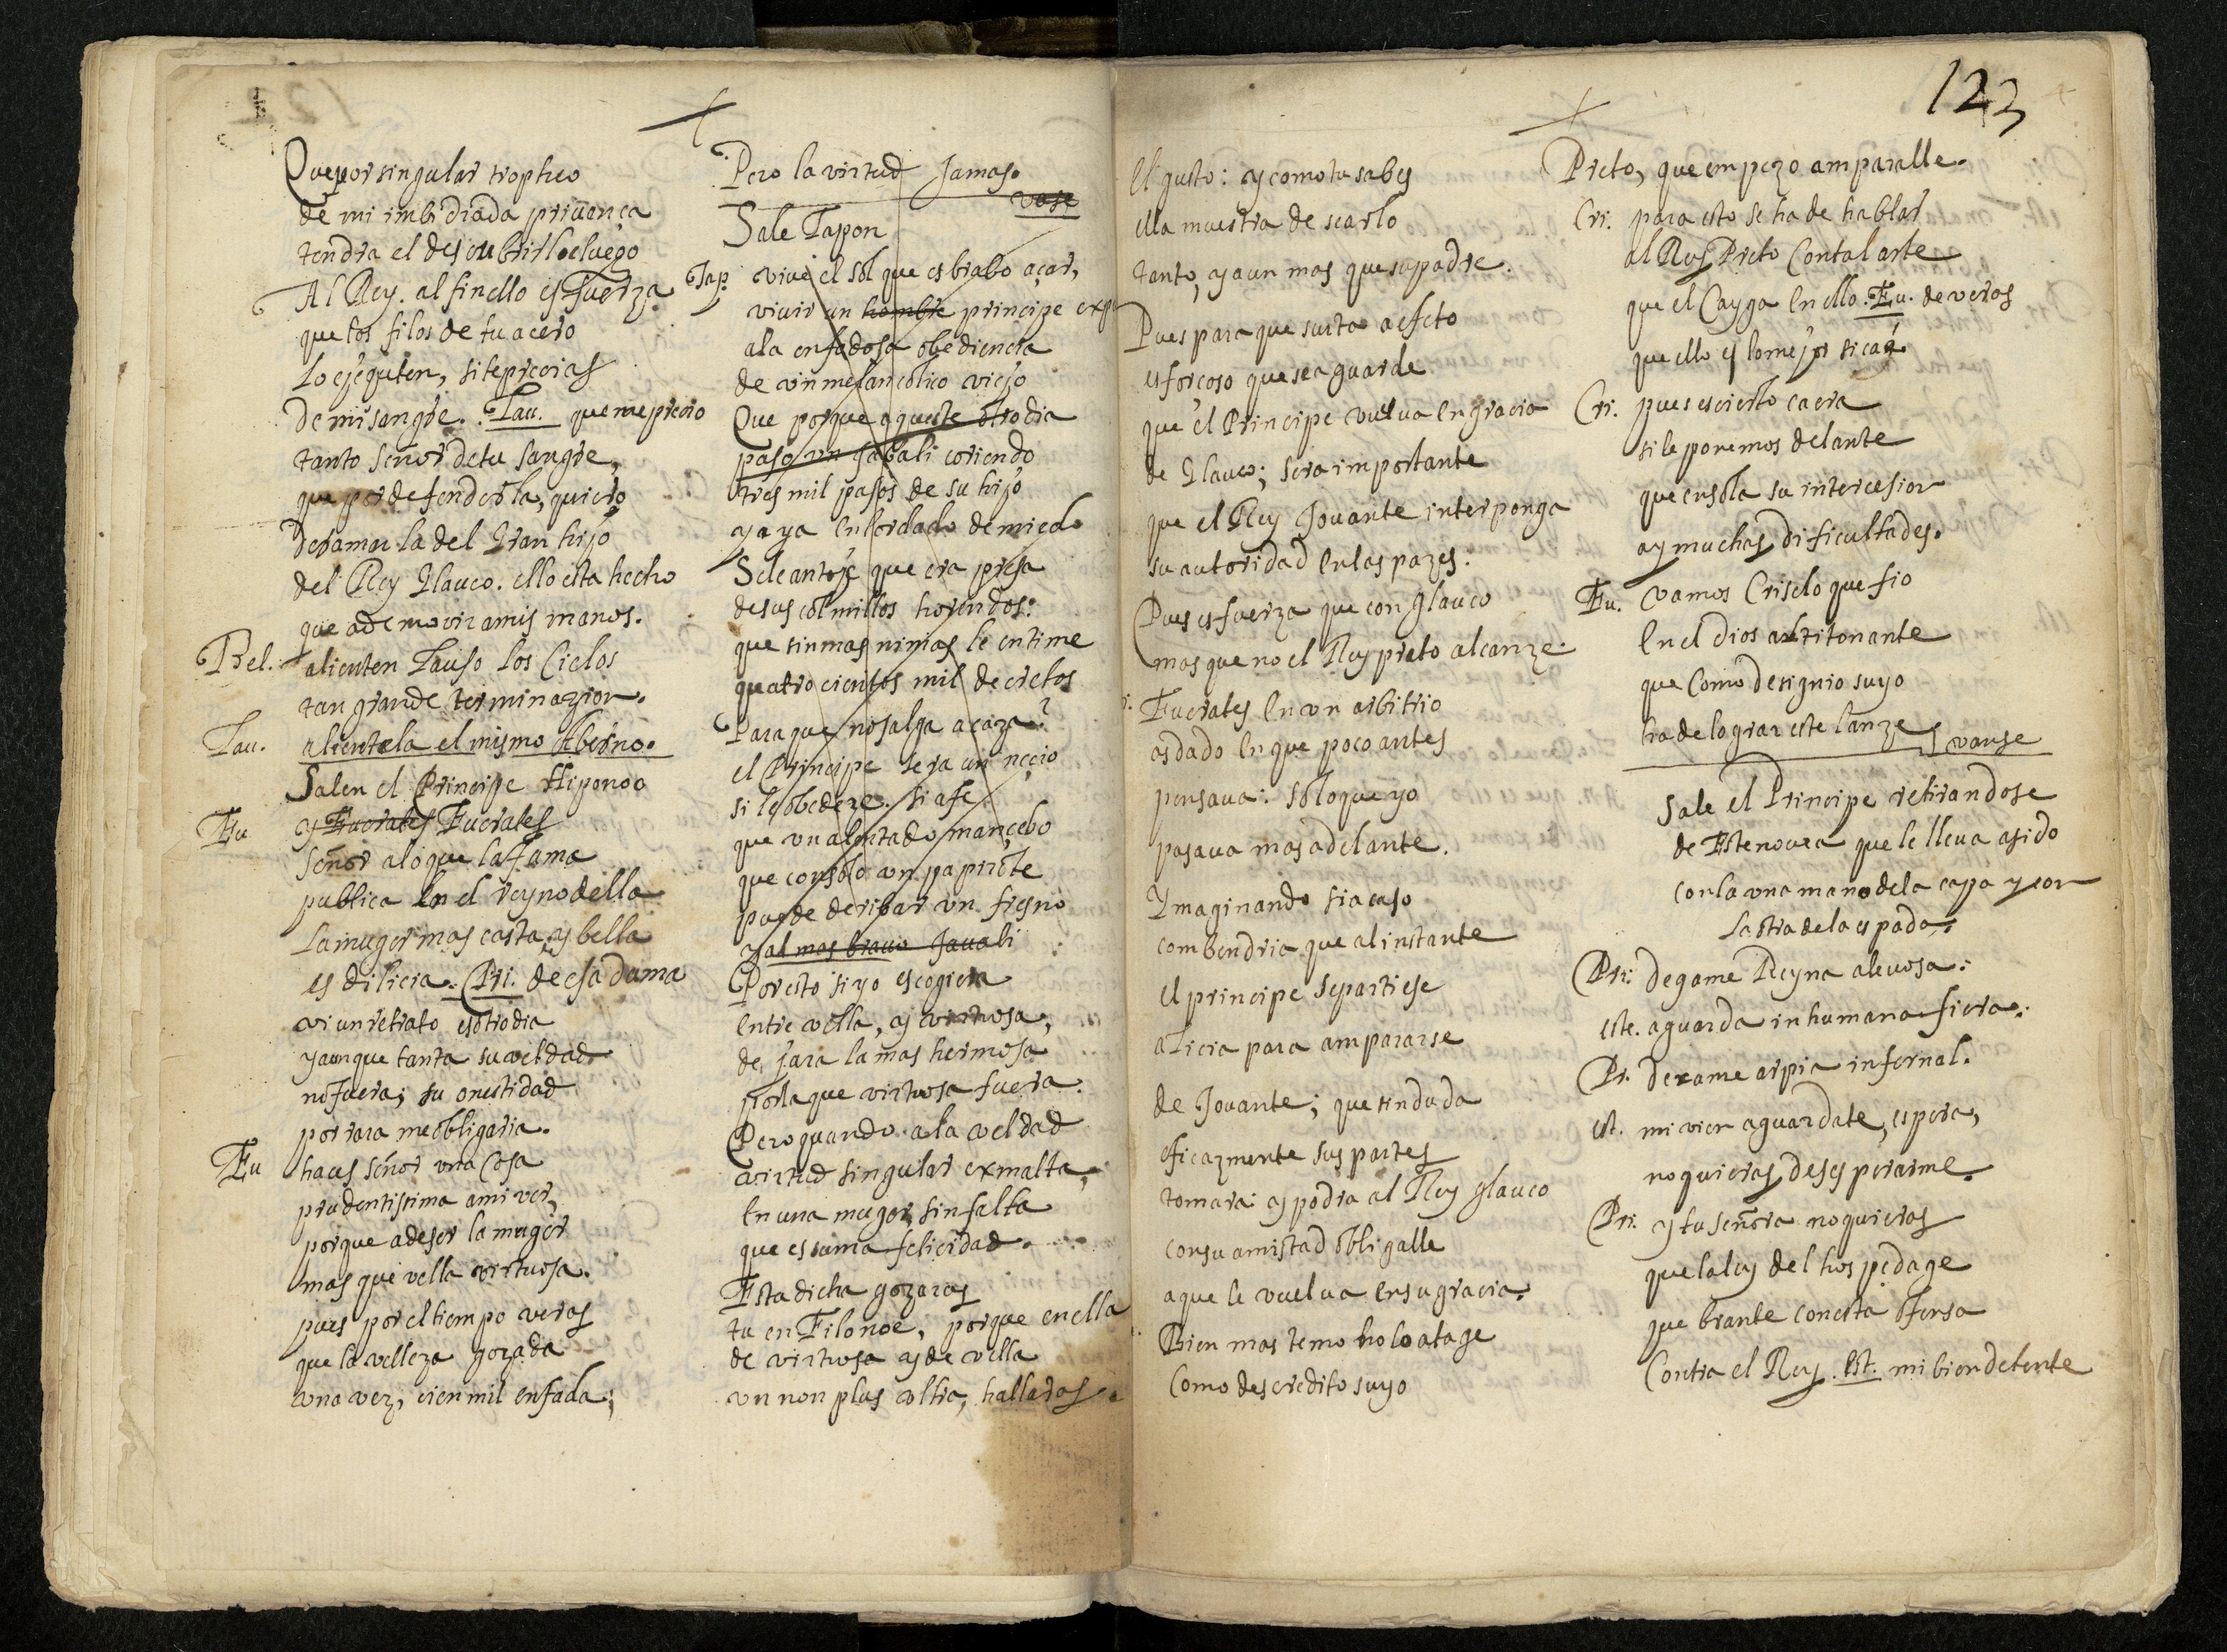 Que por singular tropheo
de mi imbidiada priuança
tendra el descubrirlo luego
Al Rey. al fin ello es fuerza
que los filos de tu acero
Lo ejeguten, si te precias
De mi sangre. Lau. que me precio
tanto señor de tu sangre,
que por defenderla, quiero
Deramar la del gran hijo
del Rey Glauco. ello esta hecho
que a de morir a mis manos.
Bel. alienten Lauso los Cielos
tan grande terminazion.
Lau. alientela el mismo Aberno.
Salen el Principe Hiponoo
y Eucrates Eucrates
Eu Señor a lo que la fama
publica En el reyno della
La muger mas casta, y bella
es di licia. Pri. de esa dama
vi un retrato esotro dia
y aunque tanta su veldad
no fuera; su onestidad
por rara me obligaria.
Eu haces señor una Cosa
prudentissima a mi ver,
porque a de ser la muger
mas que vella virtuosa.
pues por el tiempo veras
que la velleza gozada
una vez, cien mil enfada;
Pero la virtud Jamas.
vase
Sale Tapon
Tap. vive el sol que es brabo açar,
vivir un hombre principe
a la enfadosa obediencia
de vn melancolico viejo
Que porque aqueste otro dia
paso un jabali coriendo
tres mil pasos de su hijo
y aya enlerdado de miedo
Se le antoje que era presa
de sus colmillos horendos:
que sin mas ni mas le entime
quatro cientos mil decretos
Para que no salga a caza?
el Principe sera un neçio
si le obedeze. si a fe
que vn alentado mançebo
que con solo vn papirote
puede deribar vn fresno
y al mas brauo Jauali
Por esto si yo escogiera
Entre vella, y virtuosa,
de jara la mas hermosa
por la que virtuosa fuera.
Pero quando a la veldad
virtud singular exmalta,
En una muger sin falta
que es suma felicidad.
Esta dicha gozaras
tu en Filonoe, porque en ella
de virtuosa y de vella
vn non plus vltra, hallaras.
123
El gusto: y como tu sabes
ella muestra desearlo
tanto, y aun mas que su padre.
Pues para que surta a efeto
es forçoso que se aguarde
que el Principe vuelva En gracia
de Glauco; sera importante
que el Rey Jouante interponga
su autoridad En las pazes.
Pues es fuerza que con glauco
mas que no el Rey preto alcanze.
Eucrates En vn arbitrio
as dado En que poco antes
pensaua: solo que yo
pasaua mas adelante.
Ymaginando si acaso
combendria que al instante
el principe se partiese
a Licia para ampararse
de Jouante; que sin duda
eficazmente sus partes
tomara: y podra al Rey glauco
con su amistad obligalle
a que le vuelua En su gracia.
Bien mas temo no lo ataje
Como descredito suyo
Preto, que empezo amparalle.
Cri. para esto se ha de hablar
al Rey Preto Con tal arte
que el Cayga En ello. Eu. de veras
que ello es lo mejor si cae
Cri. pues es cierto caera
si le ponemos delante
que en sola su intercesion
ay muchas dificultades.
Eu. vamos Criselo que fio
En el dios altitonante
que Como designio suyo
ha de lograr este lanze vanse
Sale el Principe retirandose
de Estenouea que le lleua asido
con la vna mano de la capa y con
La otra de la espada.
Pri. degame Reyna aleuosa:
este. aguarda inhumana fiera.
Pr. dexame arpia infernal.
est. mi vien aguardate, espera,
no quieras desesperarme.
Pri. y tu señora no quieras
que la ley del hospedage
quebrante con esta ofensa
Contra el Rey. Est. mi bien detente